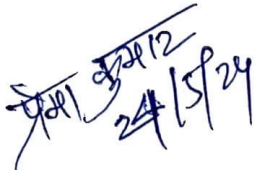 प्रेमा कुमार
24/5/24